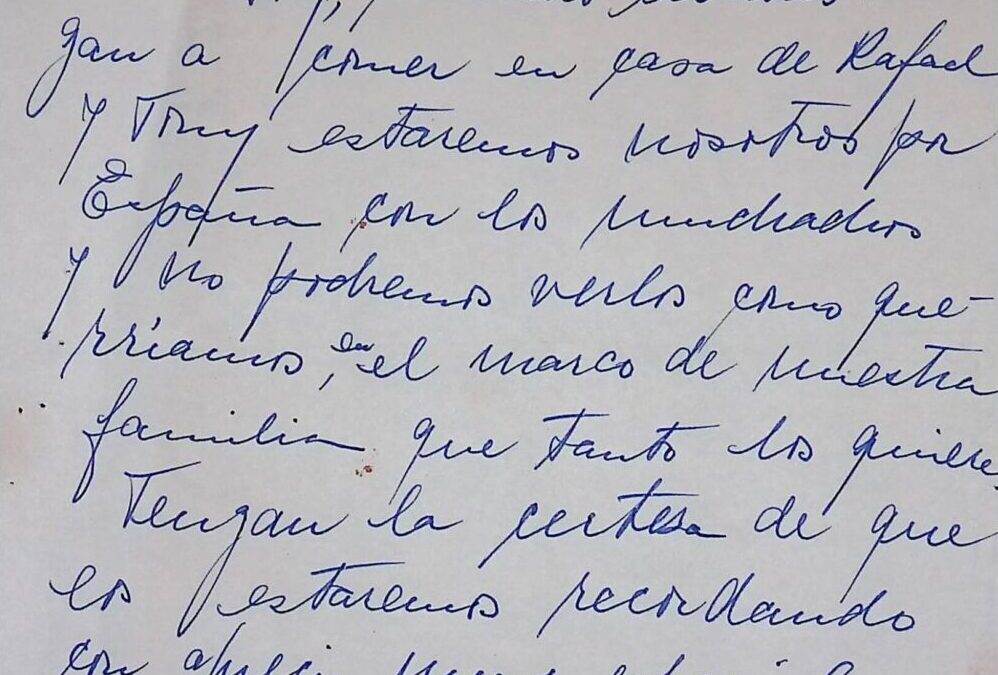 gan a comer en casa de Rafael
y Tony estaremos nosotros por
España con los muchachos
y no podremos verlos como que-
rríamos, en el marco de nuestra
familia que tanto los quiere.
Tengan la certesa de que
los estaremos recordando
con